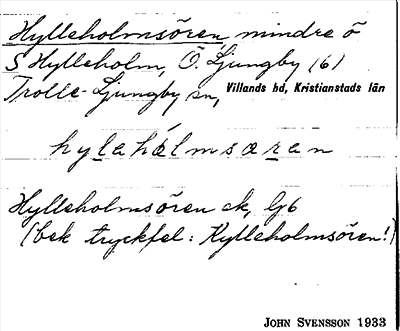 Hylleholmsören, mindre ö
S Hylleholm, Ö. Ljungby (6)
Trolle-Ljungby sn, Villands hd, Kristianstads län
hylehålmsøren
Hylleholmsören ek, Gg6
(bek tryckfel: Kylleholmsören!)
JOHN SVENSSON 1933